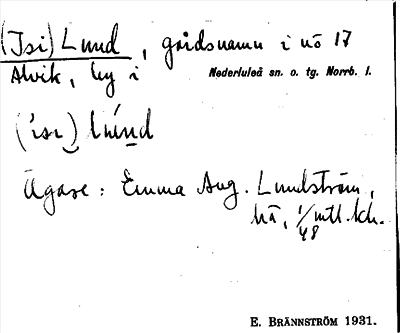 (Isi) Lund, gårdsnamn i nö 17
Alvik, by i Nederluleå sn. o. tg. Norrb. l.
Ägare: Emma Aug. Lundström,
1/48 mtl.
E. BRÄNNSTRÖM 1931.